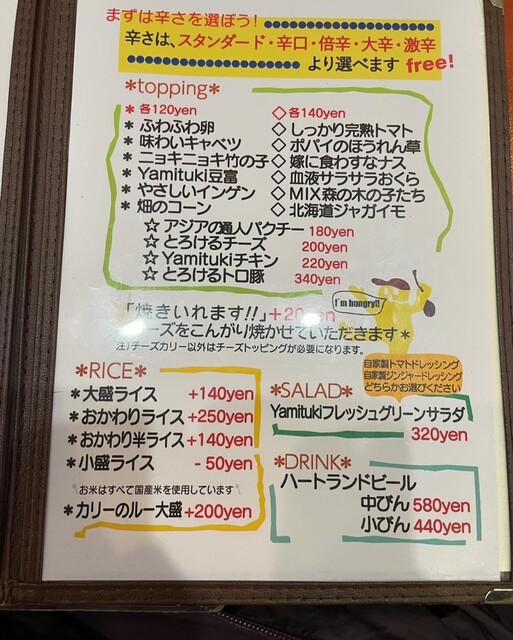 まずは辛さを選ぼう！
辛さは、スタンダード・辛口・倍辛・大辛・激辛
より選べます free!
*topping*
* 各120yen
* ふわふわ卵
* 味わいキャベツ
* ニョキニョキ竹の子
* Yamituki豆富
* やさしいインゲン
* 畑のコーン
◇各140yen
◇しっかり完熟トマト
◇ポパイのほうれん草
◇嫁に食わすなナス
◇血液サラサラおくら
◇MIX森の木の子たち
◇北海道ジャガイモ
☆ アジアの通人パクチー 180yen
☆ とろけるチーズ 200yen
☆ Yamitukiチキン 220yen
☆ とろけるトロ豚 340yen
I'm hungry!!
「焼きいれます!!」+20yen
ーズをこんがり焼かせていただきます*
注)チーズカリー以外はチーズトッピングが必要になります。
*RICE*
*大盛ライス +140yen
*おかわりライス +250yen
*おかわり半ライス +140yen
*小盛ライス - 50yen
お米はすべて国産米を使用しています
*カリーのルー大盛 +200yen
自家製トマトドレッシング
自家製ジンジャードレッシング
どちらかお選びください
*SALAD*
Yamitukiフレッシュグリーンサラダ
320yen
*DRINK*
ハートランドビール
中びん 580yen
小びん 440yen